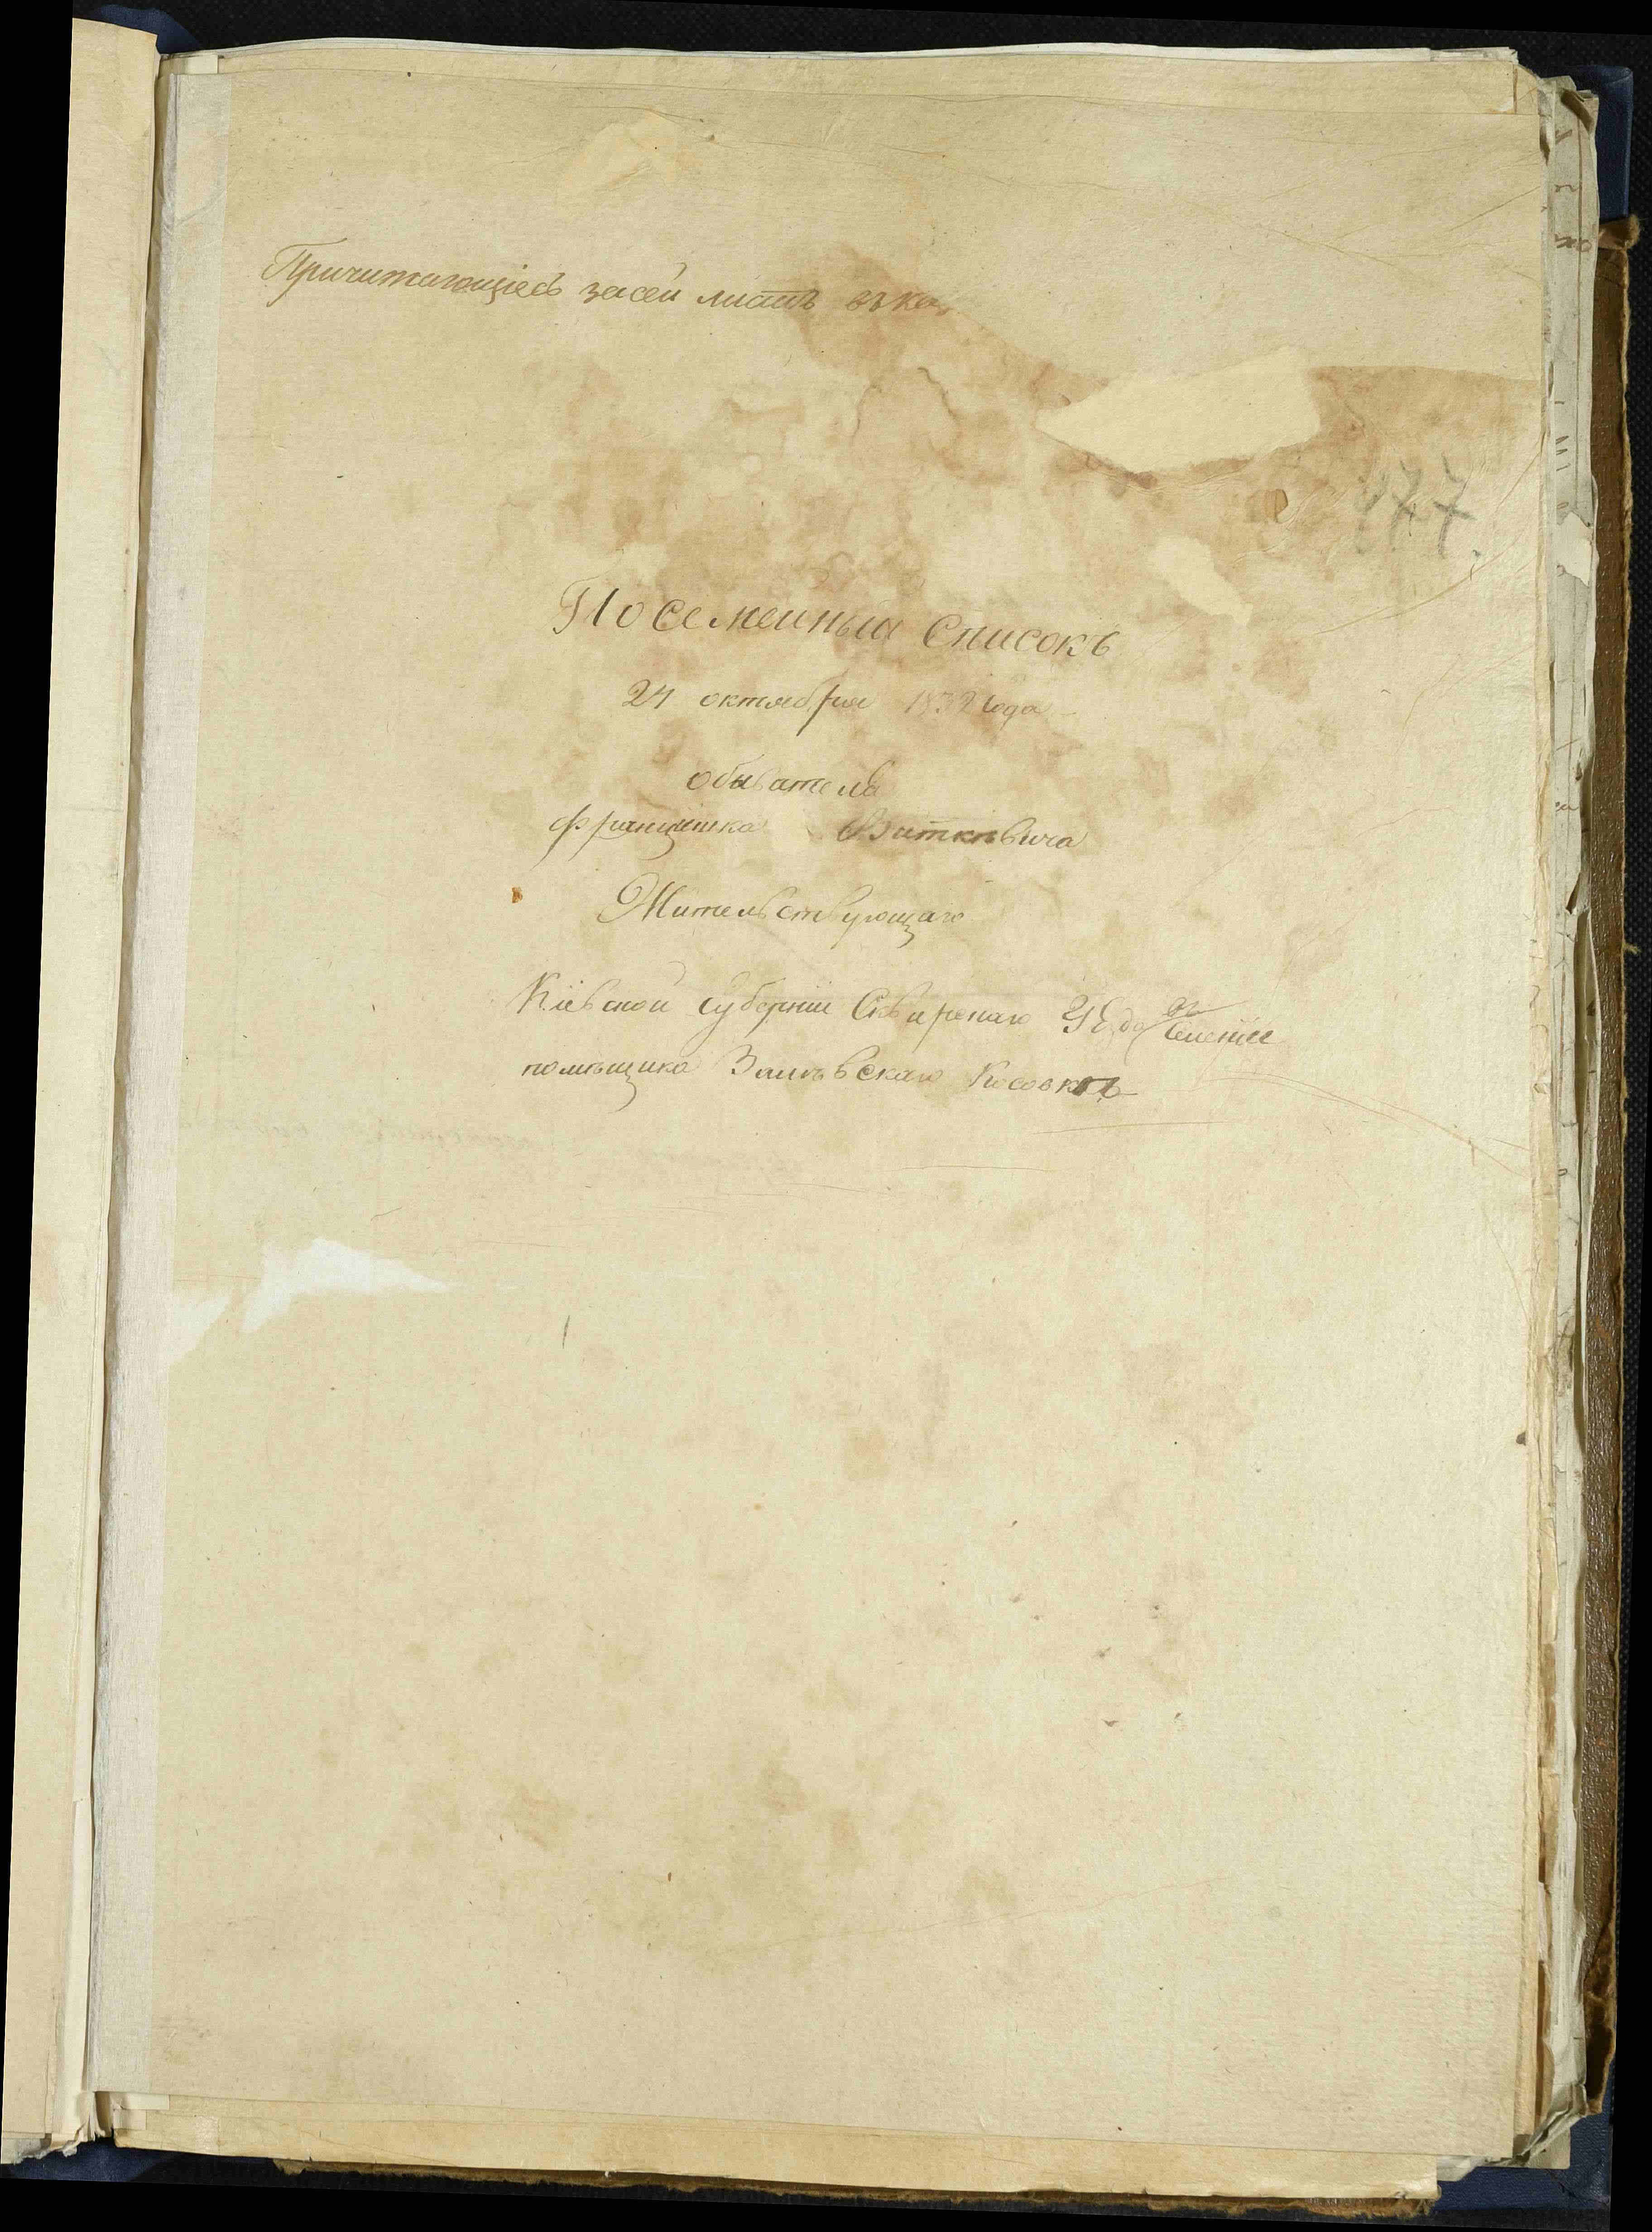 Причитающіесь за сей листъ въ ка
177
Посемейный Списокъ
24 октября 1832 года
обывателя
Францишка Виткѣвича
Жительствующаго
Кіевской Губерніи Сквирскаго УЕзда въ Селеніи
помѣщика Косовкѣ